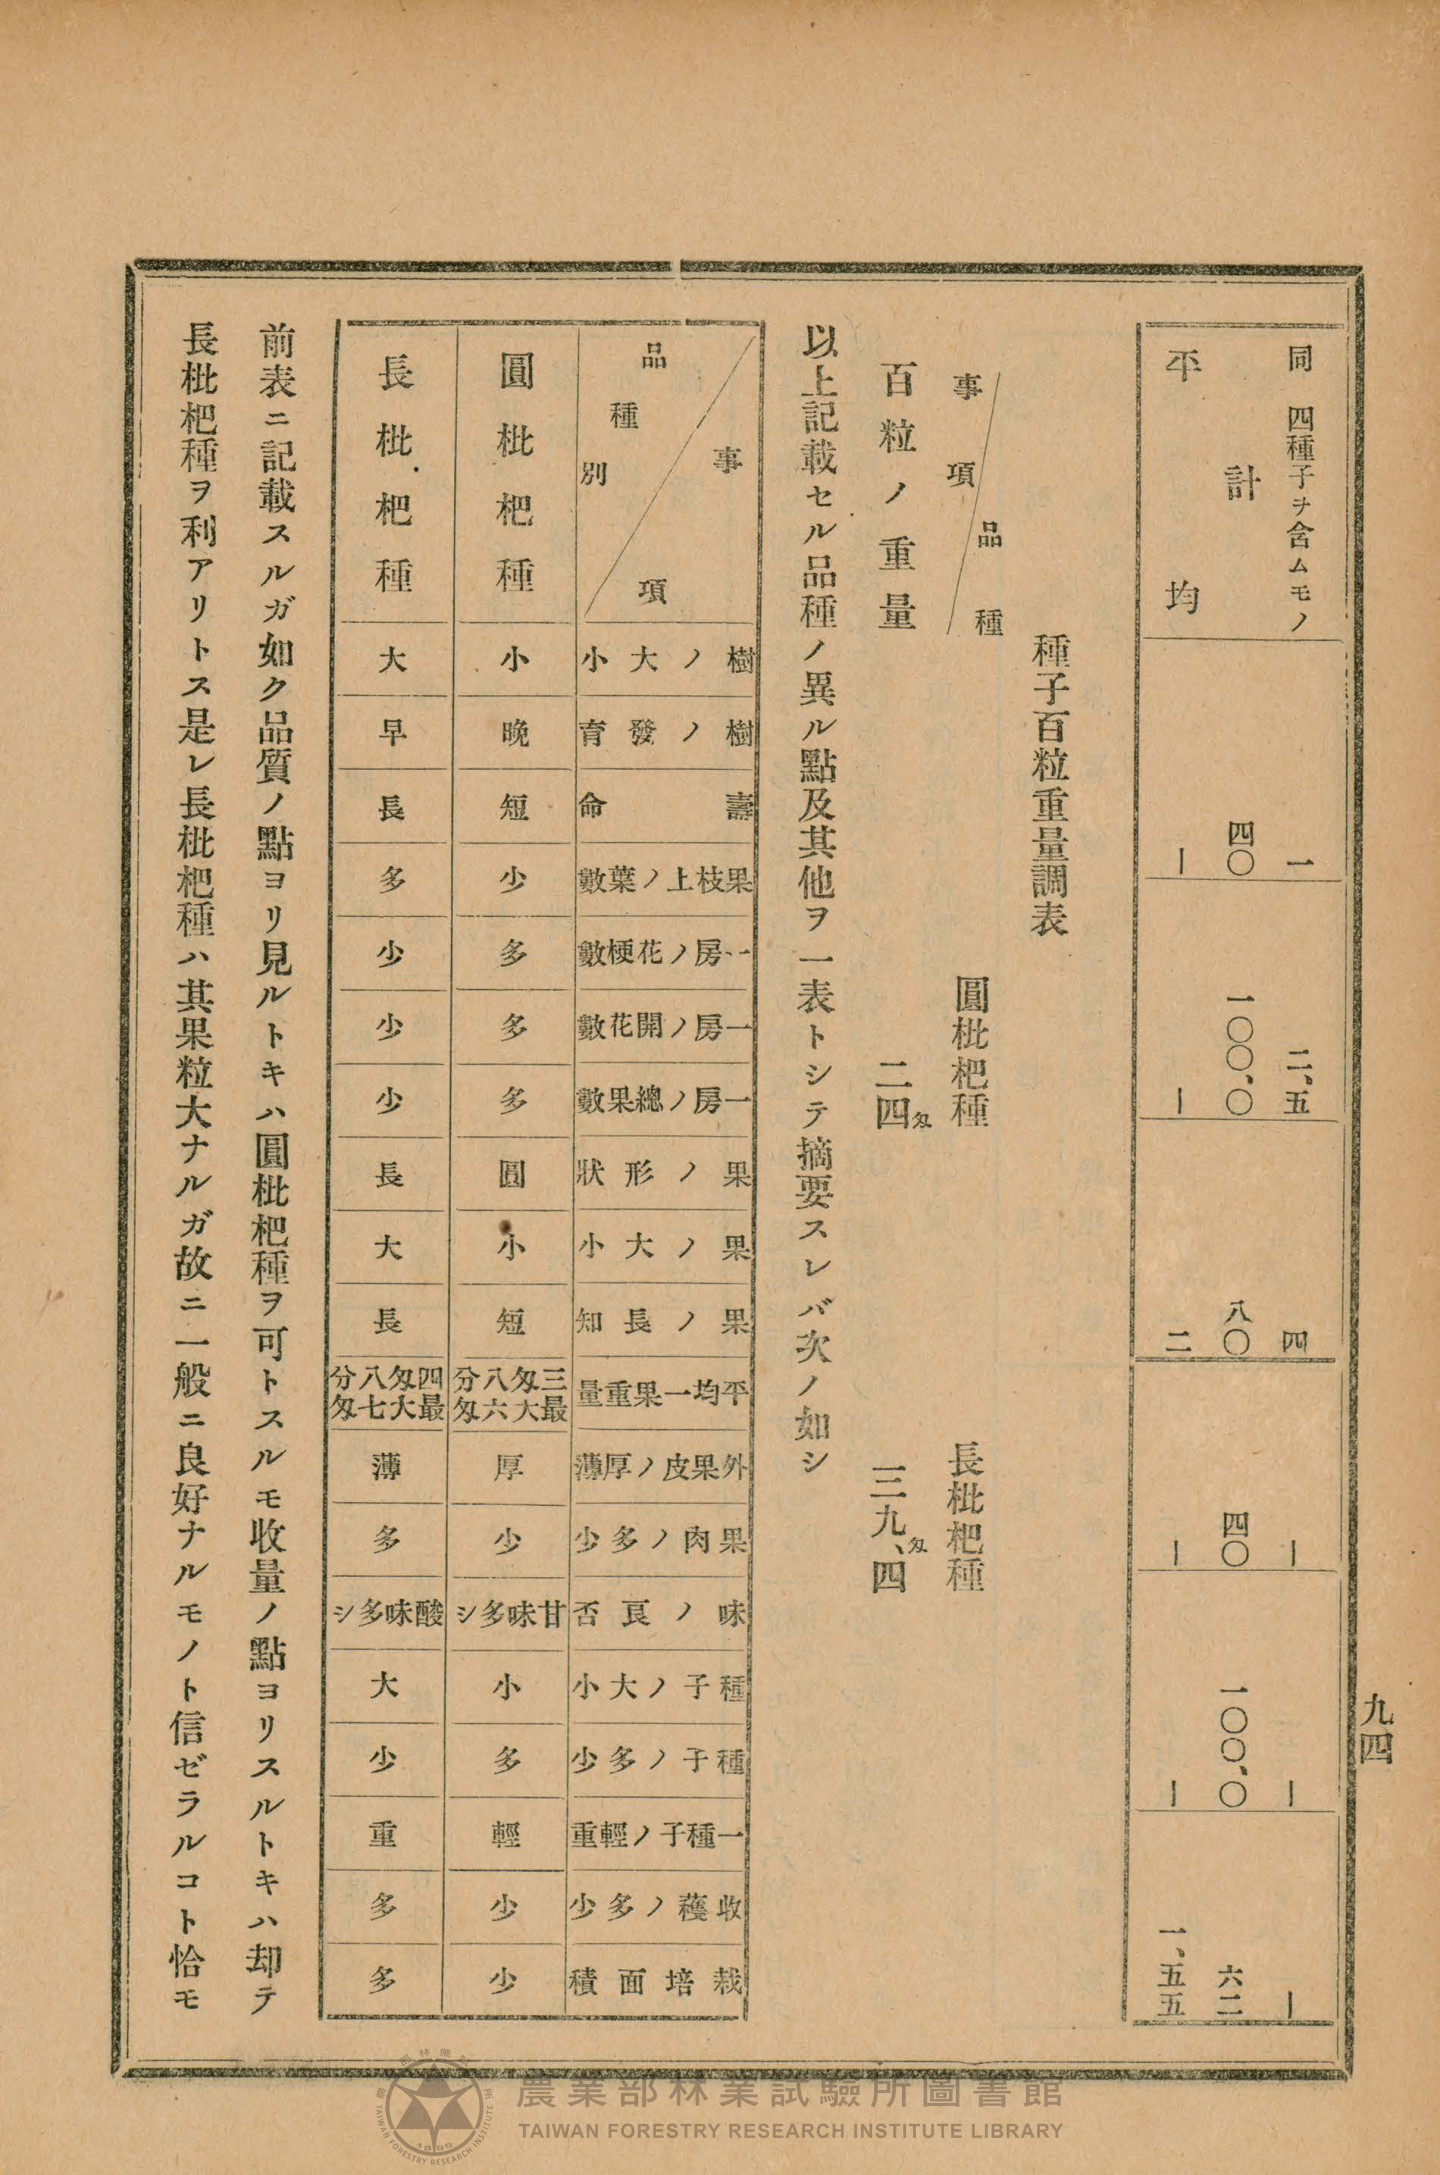 九四
同 四種子ヲ含ムモノ 一 二、五 四 ｜ ｜ ｜
計 四〇 一〇〇、〇 八〇 四〇 一〇〇、〇 六二
平均 ｜ ｜ 二 ｜ ｜ 一、五五
種子百粒重量調表
品種 事項 圓枇杷種 長枇杷種
百粒ノ重量 二四匁 三九、四匁
以上記載セル品種ノ異ル點及其他ヲ一表トシテ摘要スレバ次ノ如シ
事項 品種別 圓枇杷種 長枇杷種
樹ノ大小 小 大
樹ノ發育 晚 早
壽命 短 長
果枝上ノ葉數 少 多
一房ノ花梗數 多 少
一房ノ開花數 多 少
一房ノ總果數 多 少
果ノ形狀 圓 長
果ノ大小 小 大
果ノ長知 短 長
平均一果重量 三匁八分 最大六匁 四匁八分 最大七匁
外果皮ノ厚薄 厚 薄
果肉ノ多少 少 多
味ノ良否 甘味多シ 酸味多シ
種子ノ大小 小 大
種子ノ多少 多 少
一種子ノ輕重 輕 重
收穫ノ多少 少 多
栽培面積 少 多
前表ニ記載スルガ如ク品質ノ點ヨリ見ルトキハ圓枇杷種ヲ可トスルモ收量ノ點ヨリスルトキハ却テ
長枇杷種ヲ利アリトス是レ長枇杷種ハ其果粒大ナルガ故ニ一般ニ良好ナルモノト信ゼラルコト恰モ
農業部林業試驗所圖書館
TAIWAN FORESTRY RESEARCH INSTITUTE LIBRARY